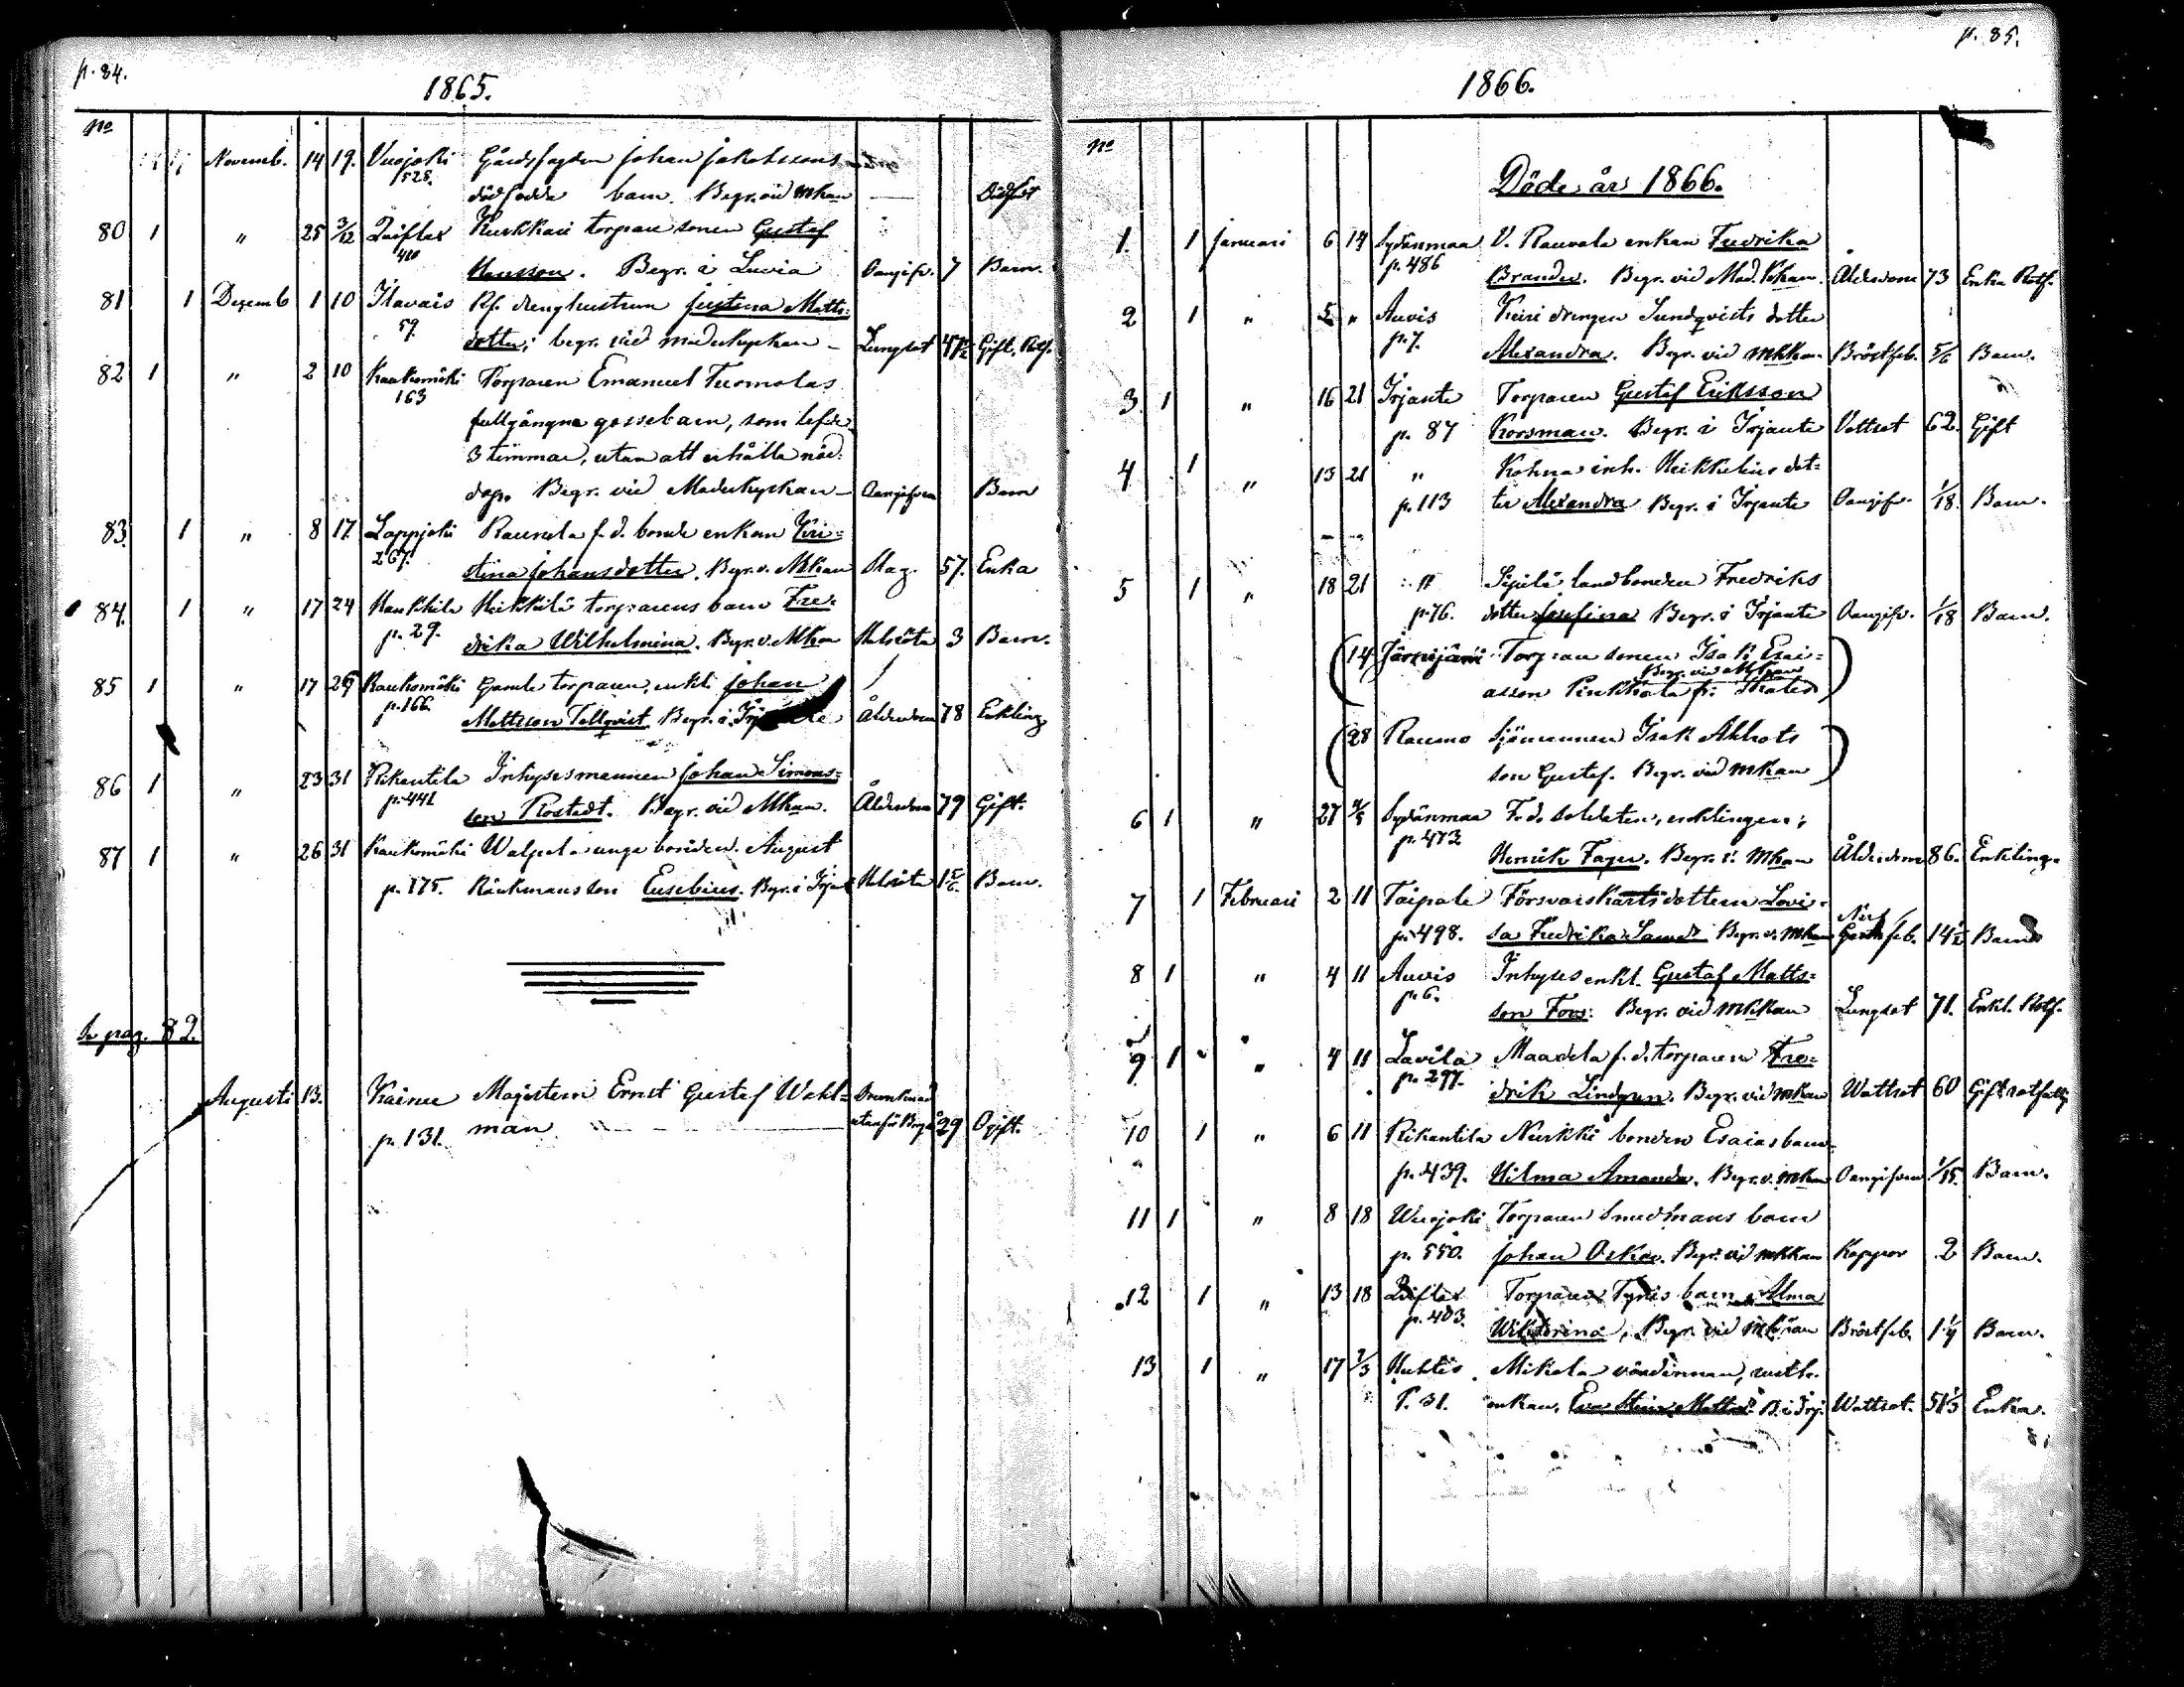 p. 84.
1865.
No
Novemb. 14 19. Vuojoki Gårdsfogden Johan Jakobssons
528. dödfödda barn. Begr. vid Mkan — Dödfödt
80 1 " 25 3/12 Luiflax Kurkkari torpare sonen Gustaf
410 Hansson. Begr. i Luvia Oangifv. 7 Barn.
81 1 Dezemb 1 10 Ilavais Rf. dräng hustrun Justina Matts=
59. dotter; begr. vid moderkyrkan — Lungsot 47 1/2 Gift, Rotf.
82 1 " 2 10 Kaukomäki Torparen Emanuel Tuomolas
163 fullgångna gossebarn, som lefde
3 timmar, utan att erhålla nöd=
dop. Begr. vid Moderkyrkan — Oangifven Barn
83. 1 " 8 17. Lappjoki Raunela f. d. bonde enkan Kri=
267. stina Johansdotter. Begr. v. Mkan Slag. 57. Enka
84. 1 " 17 24 Haukkila Heikkilä torparens barn Fre=
p. 29. drika Wilhelmina. Begr. v. Mkan Halsröta 3 Barn.
85 1 " 17 26 Kaukomäki Gamle torparen, enkl. Johan
p. 166. Mattsson Tellqvist. Begr. i Ålderdom 78 Enkling
86 1 " 23 31 Pikantila Inhysesmannen Johan Simons=
p. 441 son Rostedt. Begr. vid Mkan. Ålderdom 79 Gift.
87 1 " 26 31 Kaukomäki Walpola unge bonden August
p. 175. Räukmans son Eusebius. Begr. i Irjante Halsröta 1 5/6. Barn.
Se pag. 82.
Augusti 13. Kainu Magistern Ernst Gustaf Wahl= Drunknad
p. 131. man. utanför Borgå 29 Ogift.
p. 85.
1866.
No
Döde år 1866.
1. 1 Januari 6 14 Sydänmaa V. Rauvala enkan Fredrika
p. 486 Brander. Begr. vid Mod. Kkan. Ålderdom 73 Enka Rotf.
2 1 " " Auvis Keisi drengen Sundqvists dotter
p. 7. Alexandra. Begr. vid Mkkan. Bröstfeb. 5/6 Barn.
3. 1 " 16 21 Irjante Torparen Gustaf Eriksson
p. 87 Korsman. Begr. i Irjante Vattsot 62. Gift
4 1 " 13 21 " Kohna inh. Heikkelius dot=
p. 113 ter Alexandra Begr. i Irjante Oangifv. 1/18. Barn.
5 1 " 18 21 " Sipilä landbonden Fredriks
p. 76. dotter Josefina Begr. i Irjante Oangifv. 1/18 Barn.
(14 Torpare sonen Isak Esai= )
Begr. vid Mkan
asson
(28 Raumo Sjömannen Isak Ahlrots )
son Gustaf. Begr. vid Mkan
6 1 " 27 Sydänmaa F. d. soldaten, enklingen;
p. 473 Henrik Fager. Begr. v. Mkan Ålderdom 86. Enkling.
7 1 Februari 2 11 Taipale Försvarskarls dottern Lovi=
p. 498. sa Fredrika Begr. v. Mkan Nerf feb. 14 1/2 Barn
8 1 " 4 11 Auvis Inhyses enkl. Gustaf Matts=
p. 6. son Fors. Begr. vid Mkkan Lungsot 71. Enkl. Rotf.
9 1 " 4 11 Lavila Maadela f. d. torparen Fre=
p. 297. drik Lindgren. Begr. vid Mkan Wattsot 60 Gift rotfattig
10 1 " 6 11 Pikantila Nurkki bonden Esaias barn
p. 439. Hilma Amanda. Begr. v. Mkan Oangifven 1/15. Barn.
11 1 " 8 18 Wuojoki Torparen Smedmans barn
p. 550. Johan Oskar. Begr. vid Mkkan Koppor 2 Barn.
12 1 " 13 18 Luiflax Torparen Tyris barn Alma
p. 403. Wiktorina. Begr. vid Mkan Bröstfeb. 1 1/4 Barn.
13 1 " 17 Huhtis Mikola värdinnan,
p. 31. enkan, Eva Stina Mattsd: B. i Irj. Wattsot. 51 1/3 Enka.